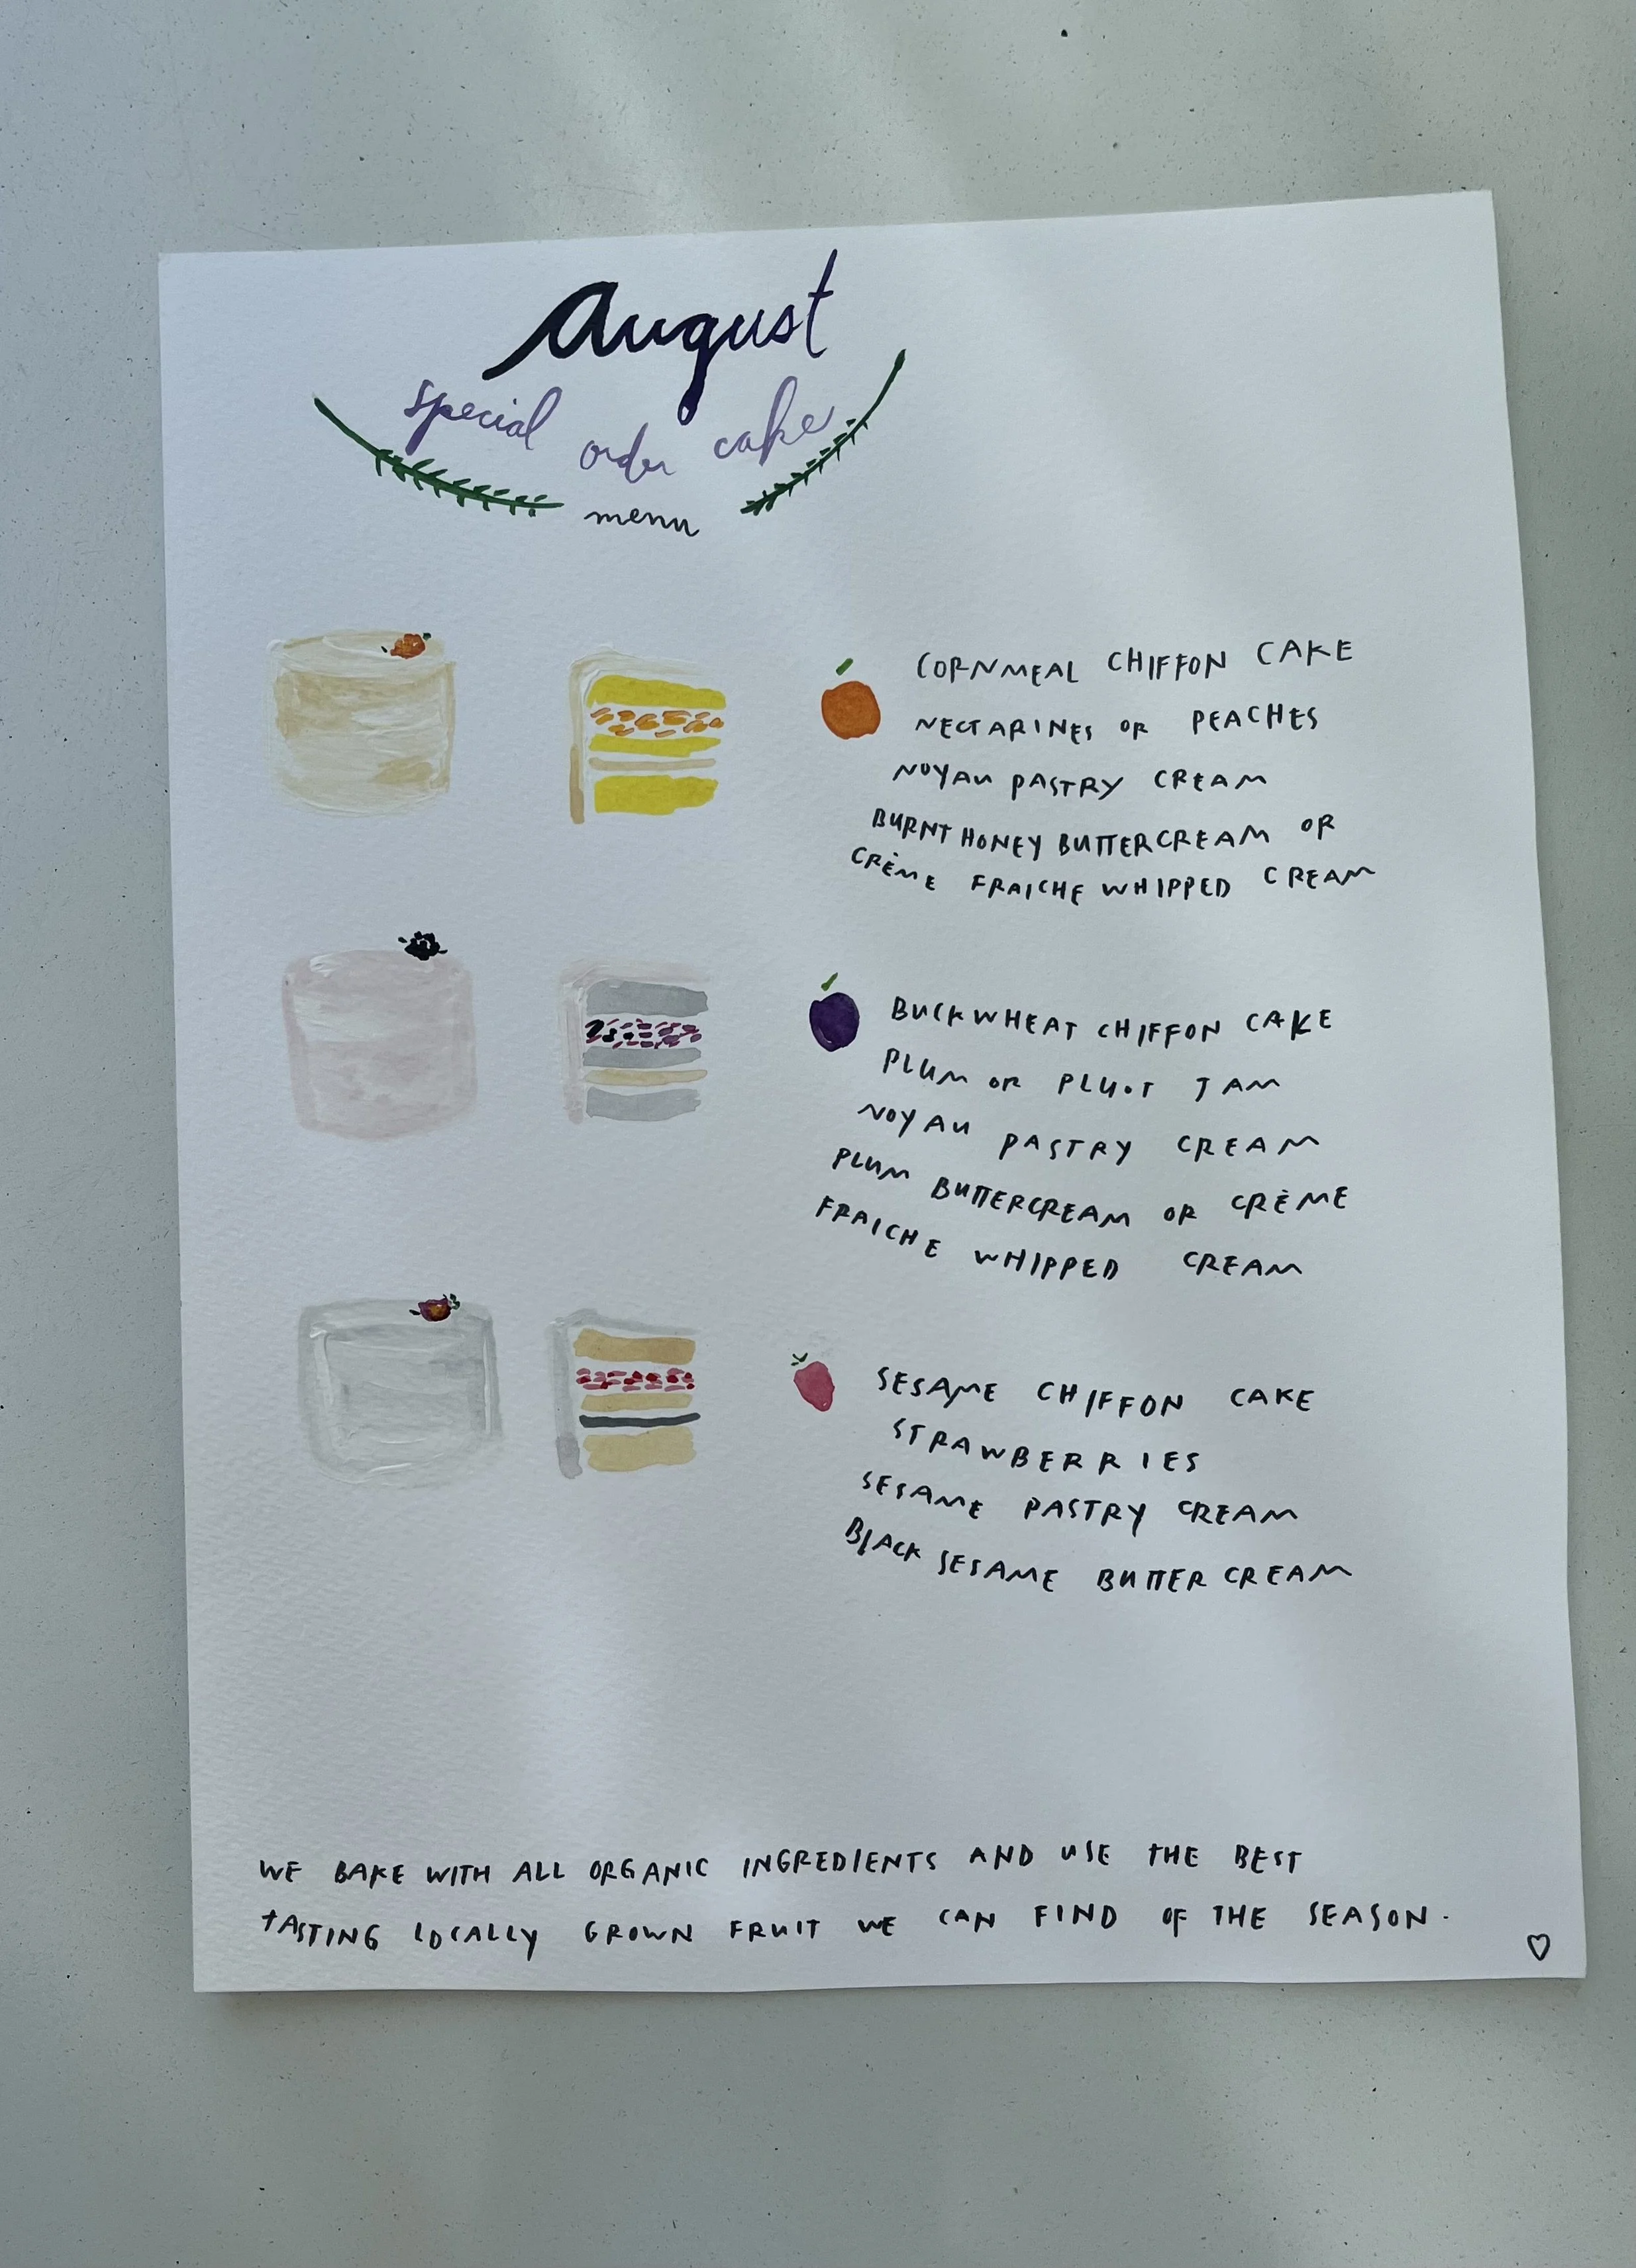 August
special order cake
menu
CORNMEAL CHIFFON CAKE
NECTARINES OR PEACHES
NOYAU PASTRY CREAM
BURNT HONEY BUTTERCREAM OR
CRÈME FRAICHE WHIPPED CREAM
BUCKWHEAT CHIFFON CAKE
PLUM OR PLUOT JAM
NOYAU PASTRY CREAM
PLUM BUTTERCREAM OR CRÈME
FRAICHE WHIPPED CREAM
SESAME CHIFFON CAKE
STRAWBERRIES
SESAME PASTRY CREAM
BLACK SESAME BUTTER CREAM
WE BAKE WITH ALL ORGANIC INGREDIENTS AND USE THE BEST
TASTING LOCALLY GROWN FRUIT WE CAN FIND OF THE SEASON.